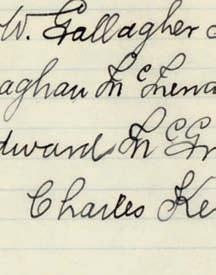 W. Gallagher
aghan McLena
dward McG
Charles Ke